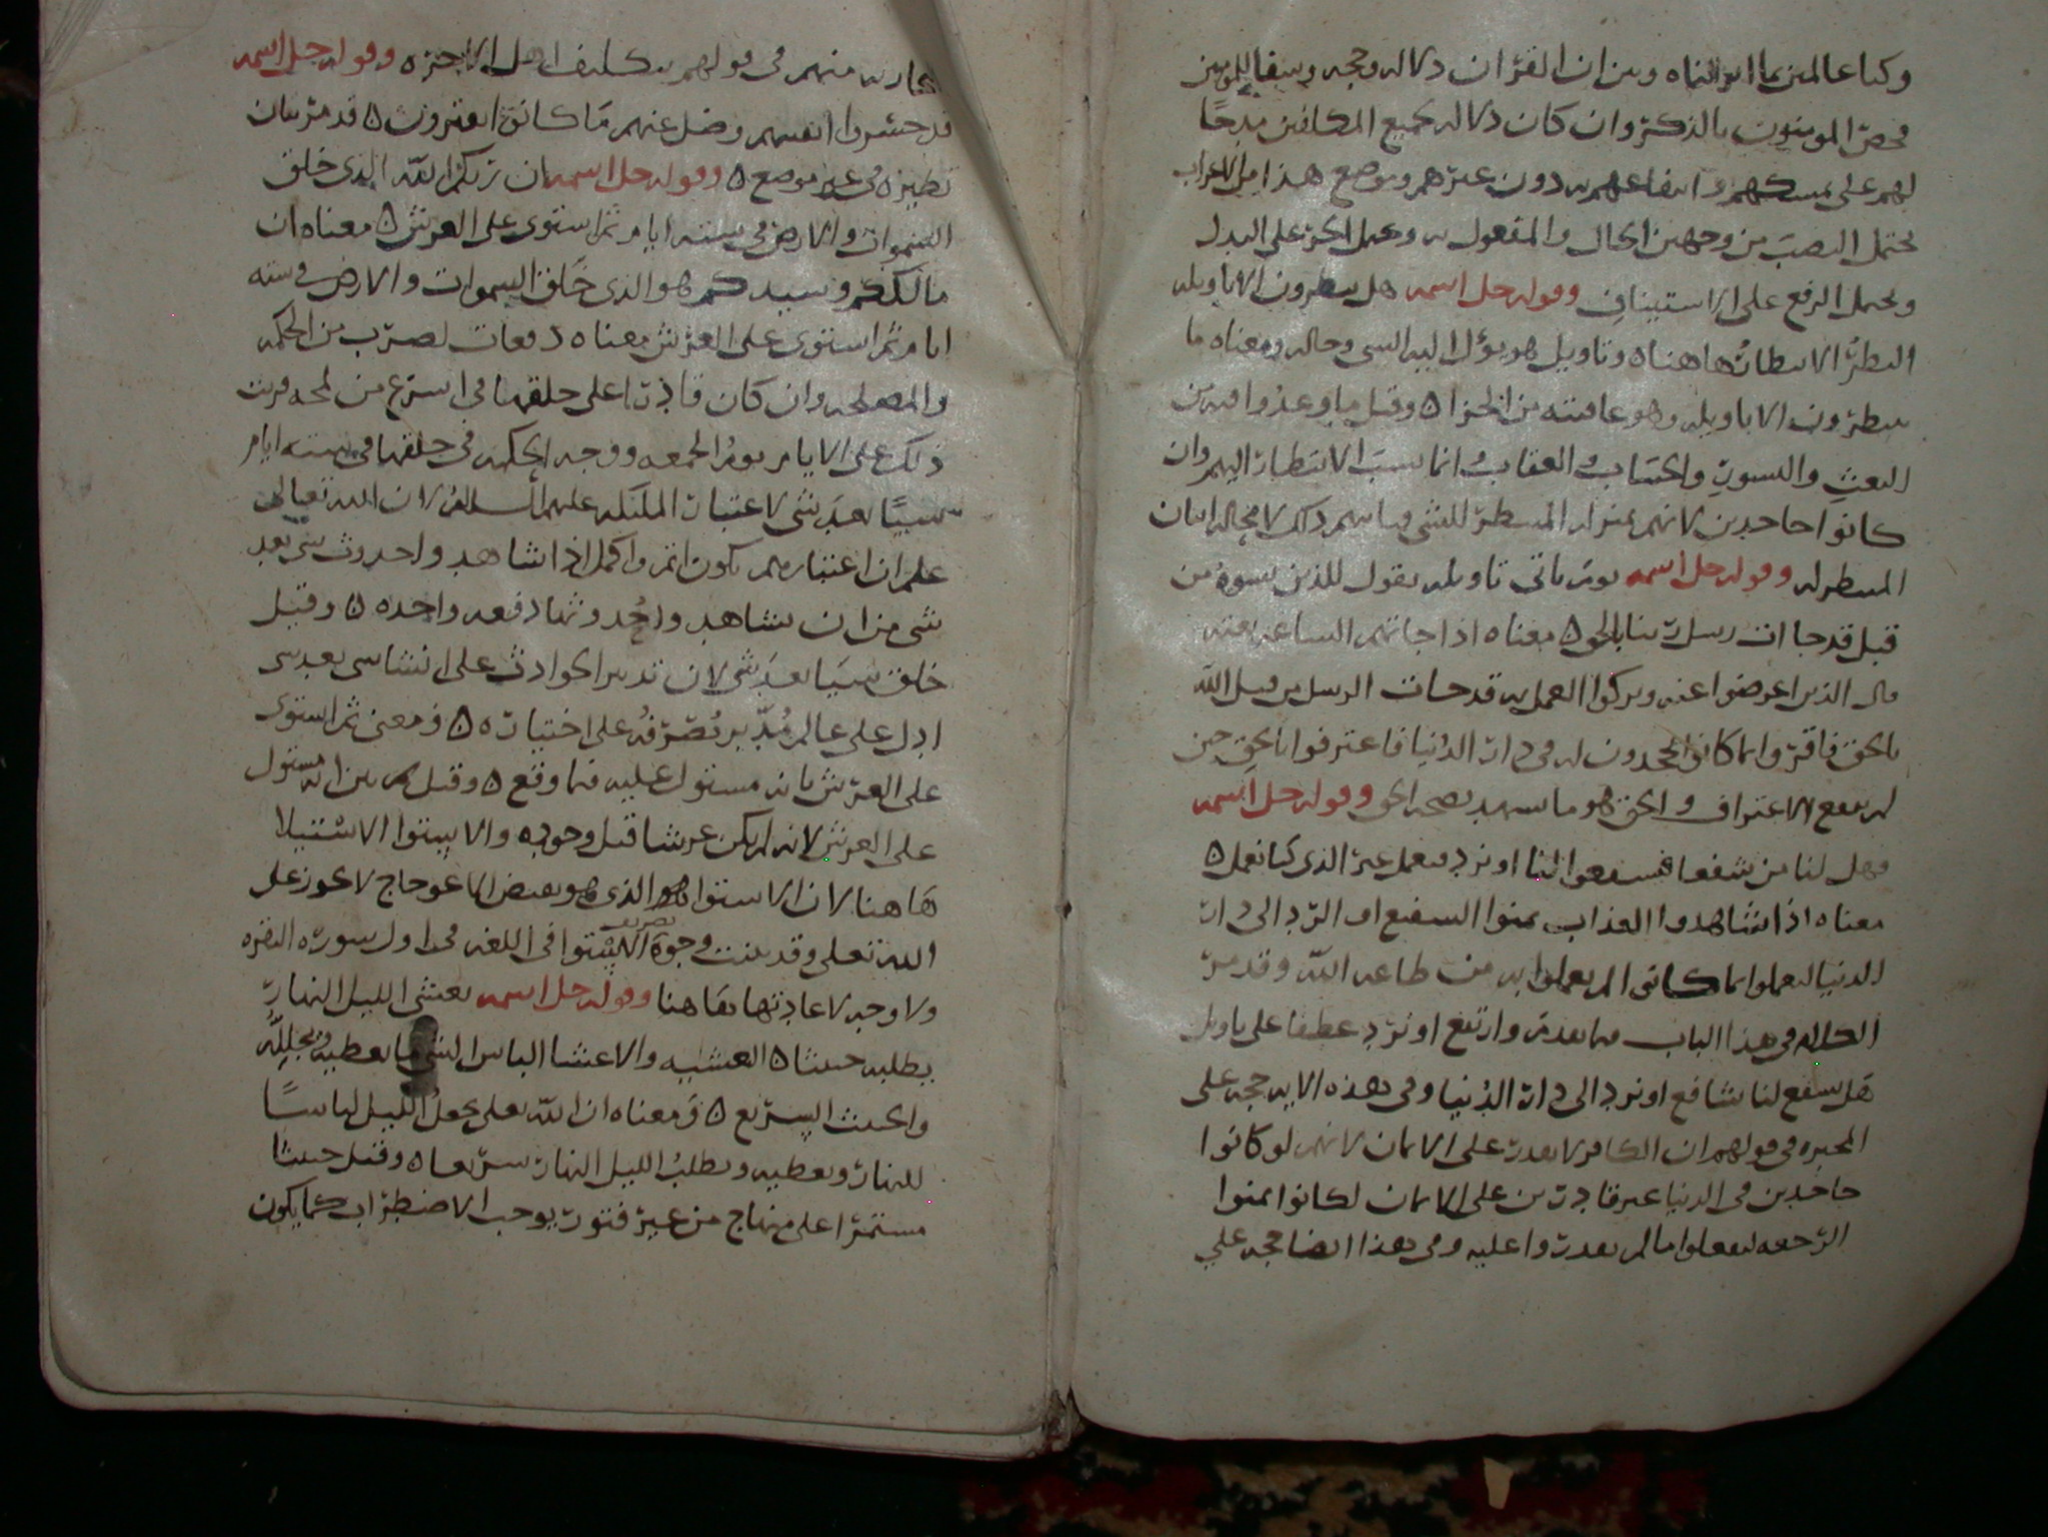 وكنا عالمين بما انزلناه وبين ان القران دلاله وحجه وشفا للمومنين
فخص المومنون بالذكر وان كان دلاله لجميع المكلفين مدحًا
لهم على تمسكهم وانتفاعهم به دون غيرهم وموضع هذا من الاعراب
يحتمل النصب من وجهين الحال والمفعول له ويحتمل الجر على البدل
ويحتمل الرفع على الاستيناف وقوله جل اسمه هل ينظرون الا تاويله
النظر الانتظار هاهنا ٥ وتاويل هو يؤل اليه الشي وحاله ومعناه ما
ينظرون الا تاويله وهو عاقبته من الجزا ٥ وقيل ما وعدوا فيه من
البعث والنسور والحساب والعقاب وانما نسب الانتظار اليهم وان
كانوا جاحدين لانهم بمنزله المنتظر للشي وياتيهم ذلك لا محاله اتيان
المنتظر له وقوله جل اسمه يوم ياتي تاويله يقول الذين نسوه من
قبل قد جاات رسل ربنا بالحق ٥ معناه اذا جاتهم الساعه بغته
قال الذين اعرضوا عنه وتركوا العمل به قد جات الرسل من قبل الله
بالحق فاقروا بما كانوا يجحدون له في دار الدنيا فاعترفوا بالحق حين
لم ينفع الاعتراف والحق هو ما يشهد بصحه الحق وقوله جل اسمه
فهل لنا من شفعا فيشفعوا لنا او نرد فنعمل غير الذي كنا نعمل ٥
معناه اذا شاهدوا العذاب تمنوا الشفيع او الرد الى دار
الدنيا ليعملوا بما كانوا لم يعملوا به من طاعه الله وقد مر
الكلام في هذا الباب فيما تقدم وارتفع او نرد عطفا على تاويل
هل يشفع لنا شافع او نرد الى دار الدنيا وفي هذه الايه حجه على
المجبره في قولهم ان الكافر لا يقدر على الايمان لانهم لو كانوا
جاحدين في الدنيا غير قادرين على الايمان لكانوا تمنوا
الرجعه ليفعلوا ما لم يقدروا عليه وفي هذا ايضا حجه علي
منهم في قولهم بتكليف اهل الاخره وقوله جل اسمه
قد خسروا انفسهم وضل عنهم ما كانوا يفترون ٥ قد مر بيان
نظيره في غير موضع ٥ وقوله جل اسمه ان ربكم الله الذي خلق
السموات والارض في سته ايام ثم استوى على العرش ٥ معناه ان
مالككم وسيدكم هو الذي خلق السموات والارض في سته
ايام ثم استوى على العرش معناه دفعات لضرب من الحكمه
والمصلحه وان كان قادرا على خلقها في اسرع من لمحه
ذلك على الايام يوم الجمعه ووجه الحكمه في خلقها في سته ايام
شيئًا بعد شي لاعتبار الملئكه عليهم السلام لان الله تعالى
علم ان اعتبارهم يكون اتم واكمل اذا شاهدوا حدوث شي بعد
شي من ان يشاهدوا حدوثها دفعه واحده ٥ وقيل
خلق شيا بعد شي لان تدبير الحوادث على انشا شي بعد شي
ادل على عالم مدبر يصرفه على اختياره ٥ ومعنى ثم استوى
على العرش بانه مستول عليه فيما وقع ٥ وقيل ثم بين انه مستول
على العرش لانه لم يكن عرشا قبل وجوده والاستوا الاستيلا
هاهنا لان الاستوا هو الذي هو نقيض الاعوجاج لا يجوز على
الله تعلى وقد بينت وجوه تصريف الاستوا في اللغه في اول سوره البقره
ولا وجه لاعادتها هاهنا وقوله جل اسمه يغشي الليل النهار
يطلبه حثيثا ٥ التغشيه والاغشا الباس الشي ما يغطيه ويجلله
والحثيث السريع ٥ ومعناه ان الله تعلى يجعل الليل لباسًا
للنهار ويغطيه ويطلب الليل النهار سريعا ٥ وقيل حثيثا
مستمرا على منهاج من غير فتور يوجب الاضطراب كما يكون